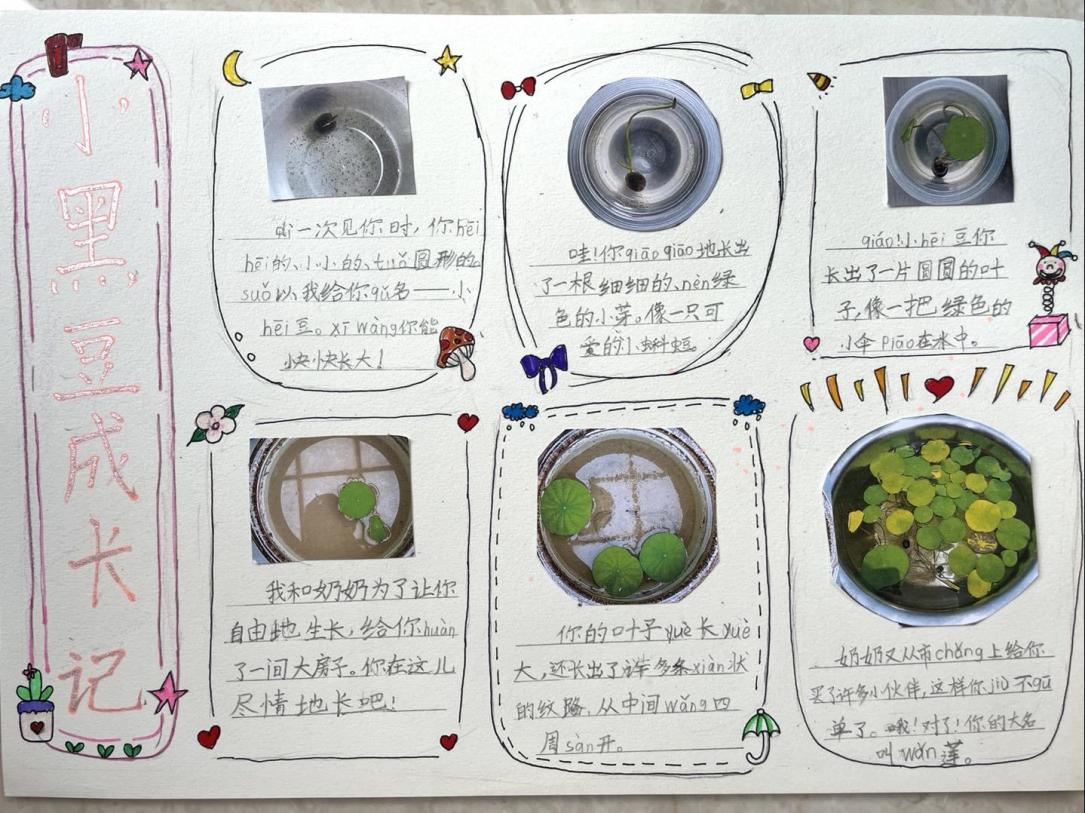 小黑豆成长记
一次见你时，你hēi
hēi的、小小的、tuǒ圆形的,
suǒ以，我给你qǔ名——小
hēi豆。xī wàng你能
快快长大！
哇！你qiāo qiāo地长出
了一根细细的、nèn绿
色的小芽。像一只可
爱的小蝌蚪。
qiáo！小hēi豆你
长出了一片圆圆的叶
子，像一把绿色的
小伞piāo在水中。
我和奶奶为了让你
自由地生长，给你huàn
了一间大房子。你在这儿
尽情地长吧！
你的叶子yuè长yuè
大，还长出了许多条xiàn状
的纹路，从中间wǎng四
周sàn开。
奶奶又从市chǎng上给你
买了许多小伙伴，这样你jiù不gū
单了。哦！对了！你的大名
叫wǎn莲。